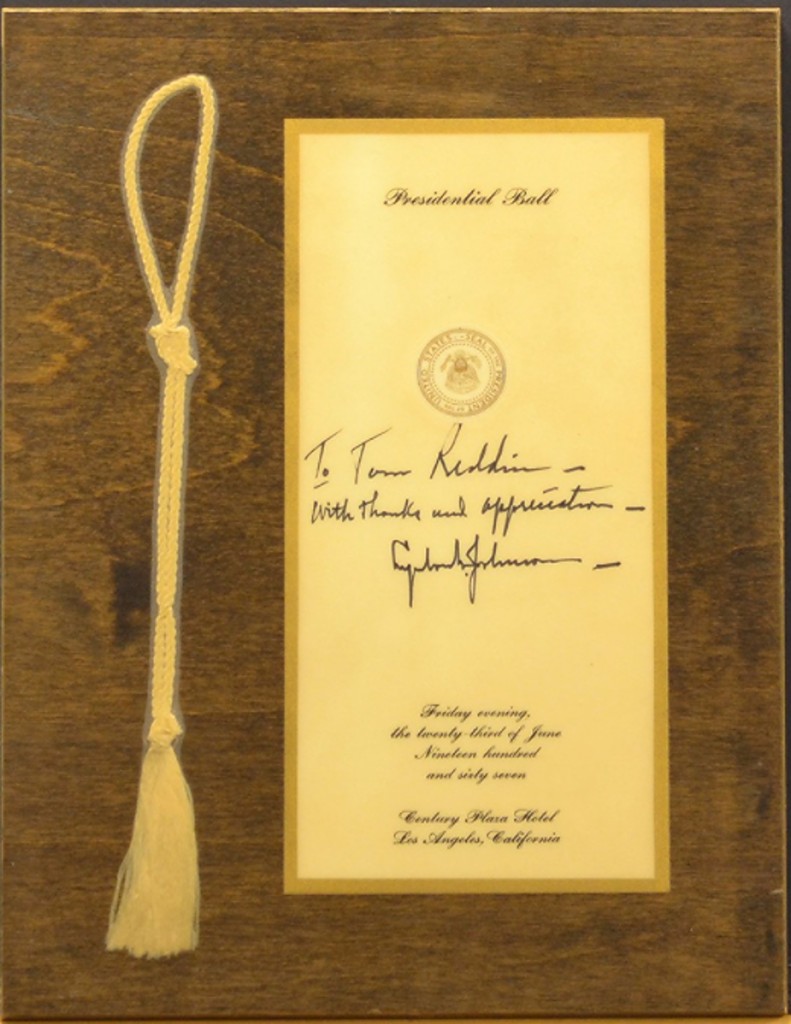 Presidential Ball
SEAL OF THE PRESIDENT OF THE UNITED STATES
To Tom Reddin —
With thanks and appreciation —
Lyndon B. Johnson —
Friday evening,
the twenty-third of June
Nineteen hundred
and sixty seven
Century Plaza Hotel
Los Angeles, California